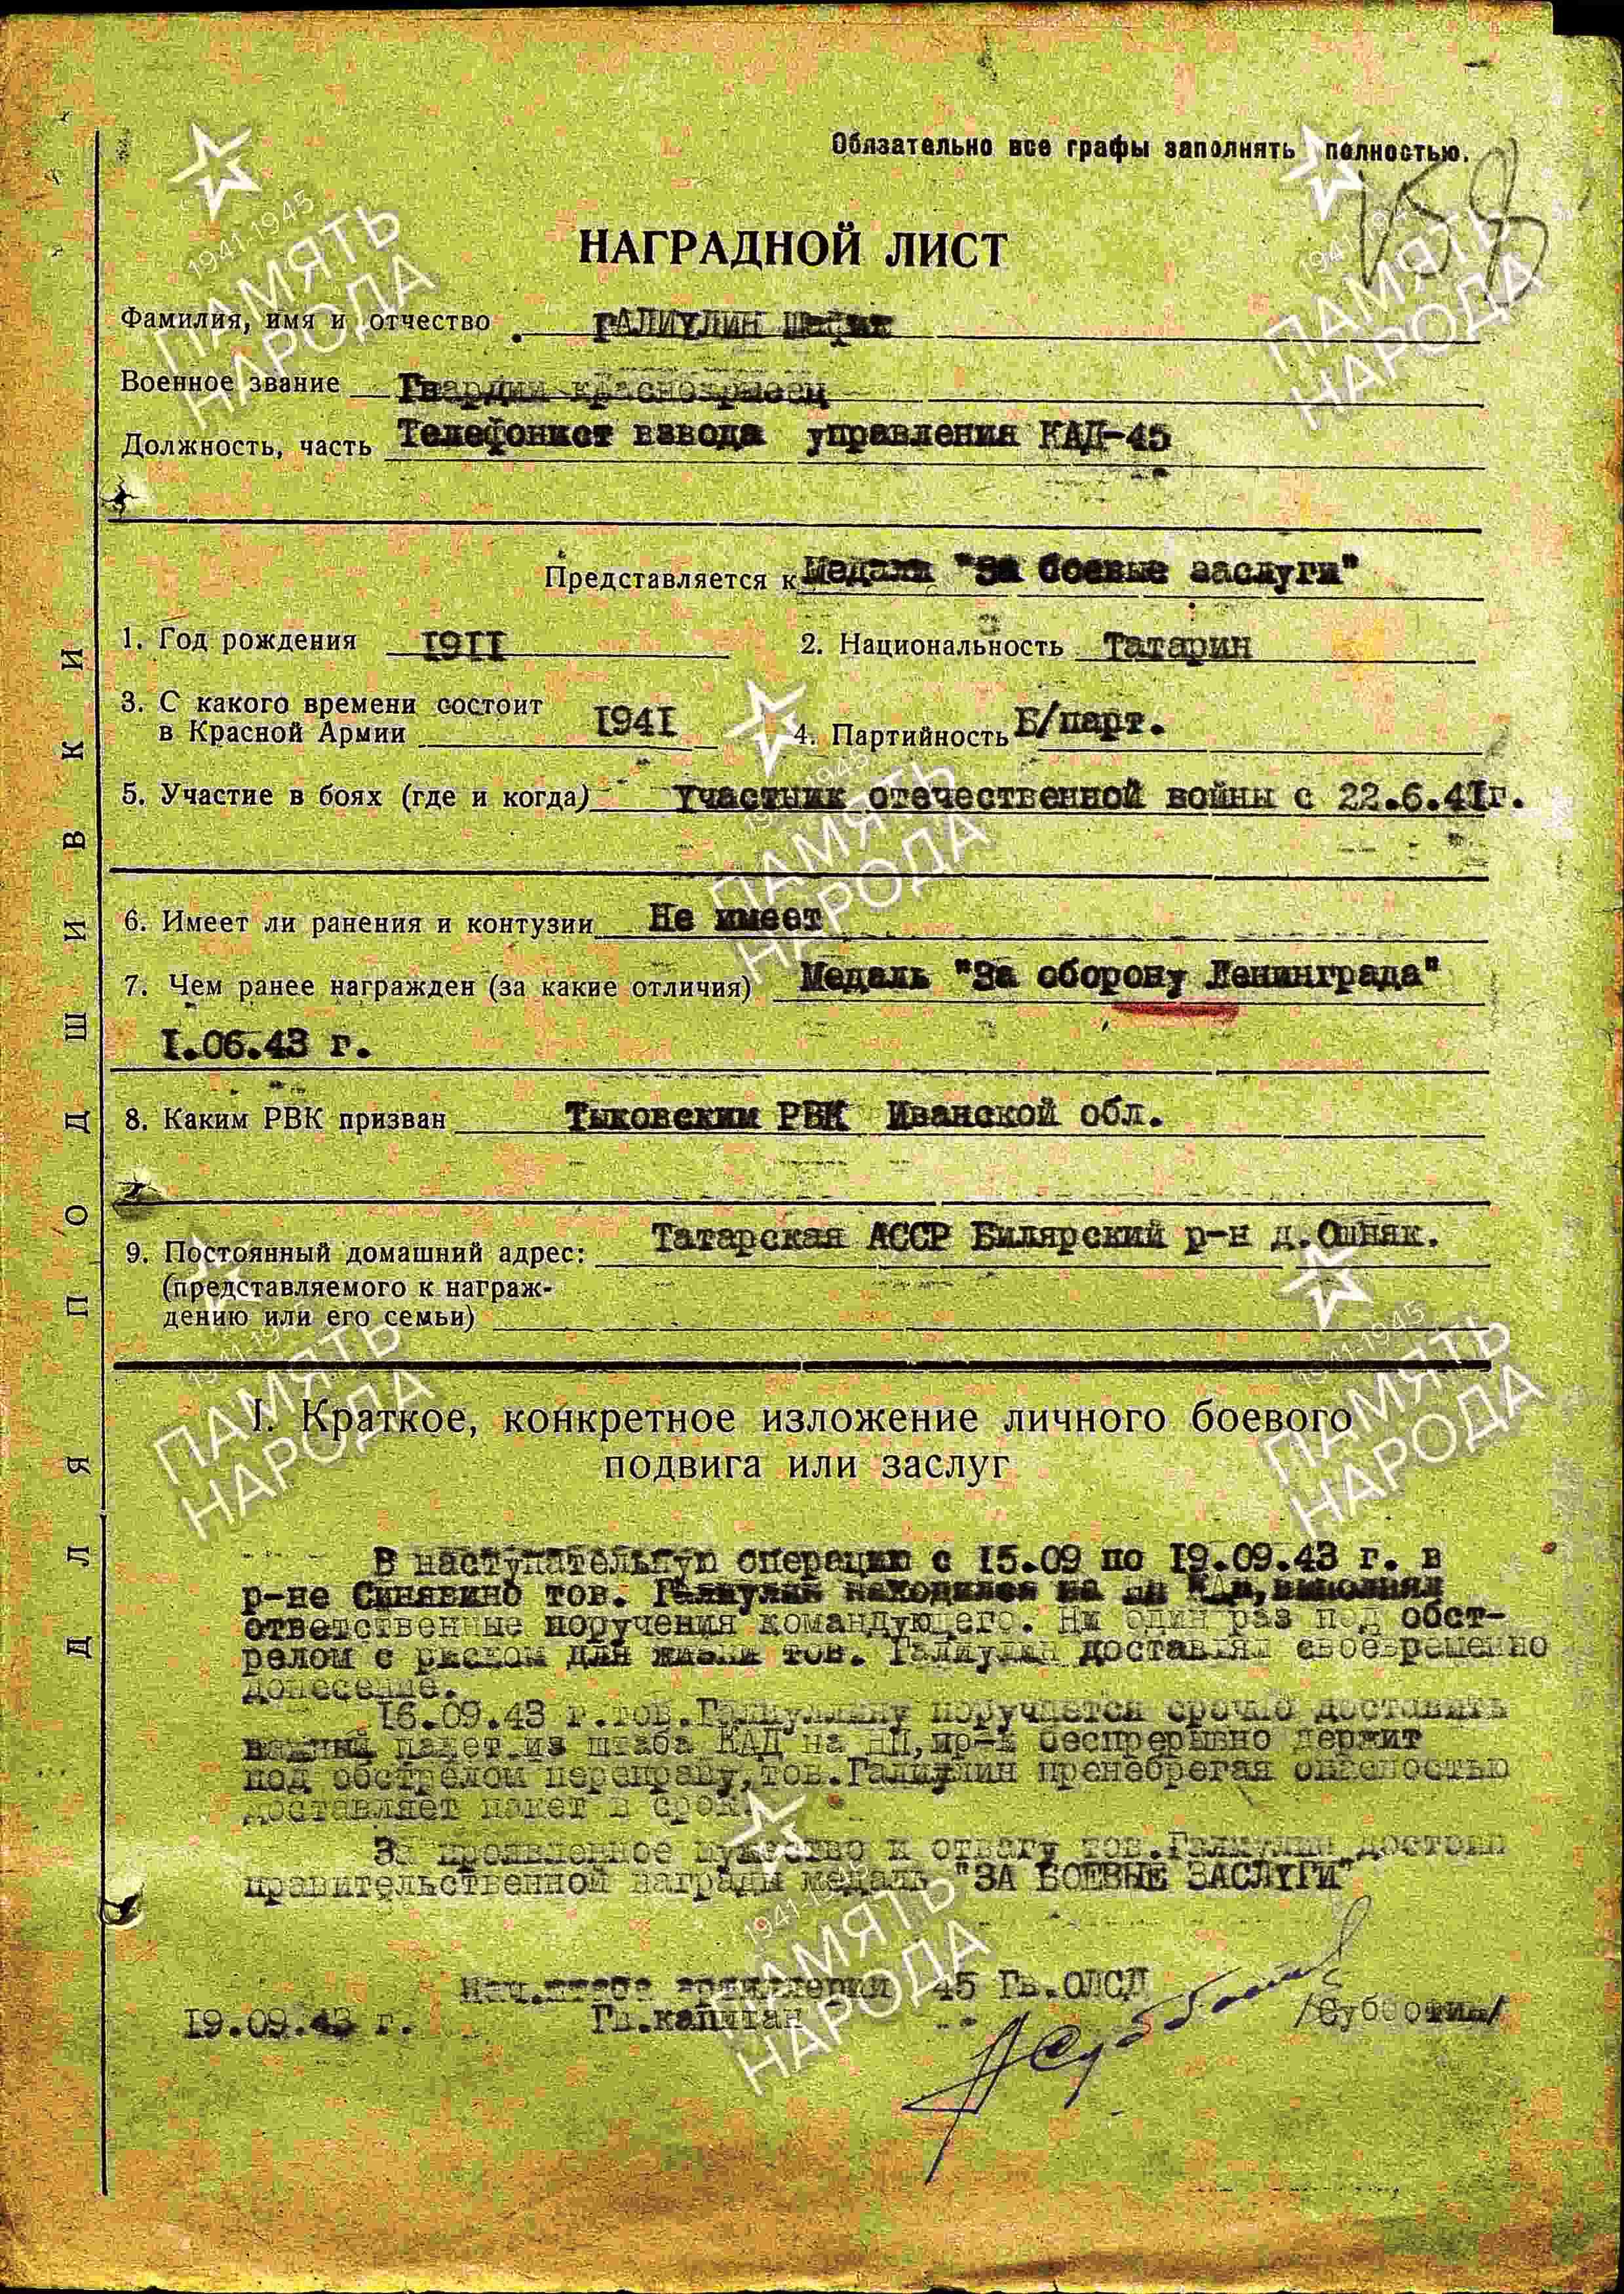 Обязательно все графы заполнять полностью.
НАГРАДНОЙ ЛИСТ
Фамилия, имя и отчество ГАЛИУЛИН
Военное звание Гвардии красноармеец
Должность, часть Телефонист взвода управления КАД-45
Представляется к Медали "За боевые заслуги"
1. Год рождения 1911 2. Национальность Татарин
3. С какого времени состоит
в Красной Армии 1941 4. Партийность Б/парт.
5. Участие в боях (где и когда) Участник отечественной войны с 22.6.41г.
6. Имеет ли ранения и контузии Не имеет
7. Чем ранее награжден (за какие отличия) Медаль "За оборону Ленинграда"
1.06.43 г.
8. Каким РВК призван Тыковским РВК Иванской обл.
9. Постоянный домашний адрес: Татарская АССР Билярский р-н д.Ошняк.
(представляемого к награж-
дению или его семьи)
I. Краткое, конкретное изложение личного боевого
подвига или заслуг
В наступательную операцию с 15.09 по 19.09.43 г. в
р-не Синявино тов. Галиулин находился на НП КАД, выполнял
ответственные поручения командующего. Ни один раз под обст-
релом с риском для жизни тов. Галиулин доставлял своевременно
донесение.
16.09.43 г. тов. Галиуллину поручается срочно доставить
важный пакет из штаба КАД на НП, пр-к беспрерывно держит
под обстрелом переправу, тов. Галиулин пренебрегая опасностью
доставляет пакет в срок.
За проявленное мужество и отвагу тов. Галиулин достоин
правительственной награды медаль "ЗА БОЕВЫЕ ЗАСЛУГИ"
Нач.штаба артиллерии 45 Гв.ОЛСД
19.09.43 г. Гв.капитан /Субботин/
ДЛЯ ПОДШИВКИ
1941-1945
ПАМЯТЬ
НАРОДА
1941-1945
ПАМЯТЬ
НАРОДА
1941-1945
ПАМЯТЬ
НАРОДА
1941-1945
ПАМЯТЬ
НАРОДА
1941-1945
ПАМЯТЬ
НАРОДА
1941-1945
ПАМЯТЬ
НАРОДА